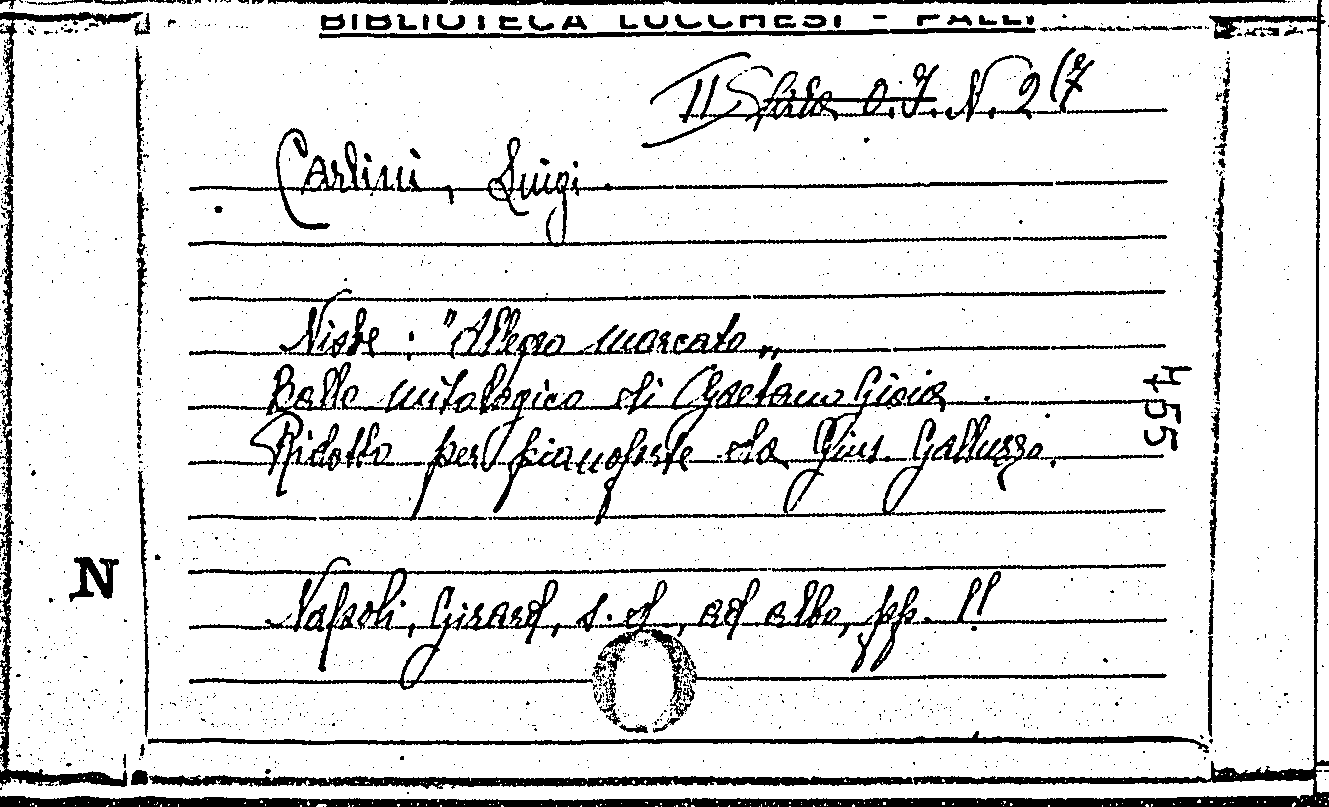 BIBLIOTECA LUCCHESI - PALLI
II Sala O. I. N. 2 (7
Carlini, Luigi.
Niobe : "Allegro marcato„
Ballo mitologico di Gaetano Gioia.
Ridotto per pianoforte da Gius. Galluzzo.
455
N
Napoli, Girard, s. d, ad albo, pp. 11